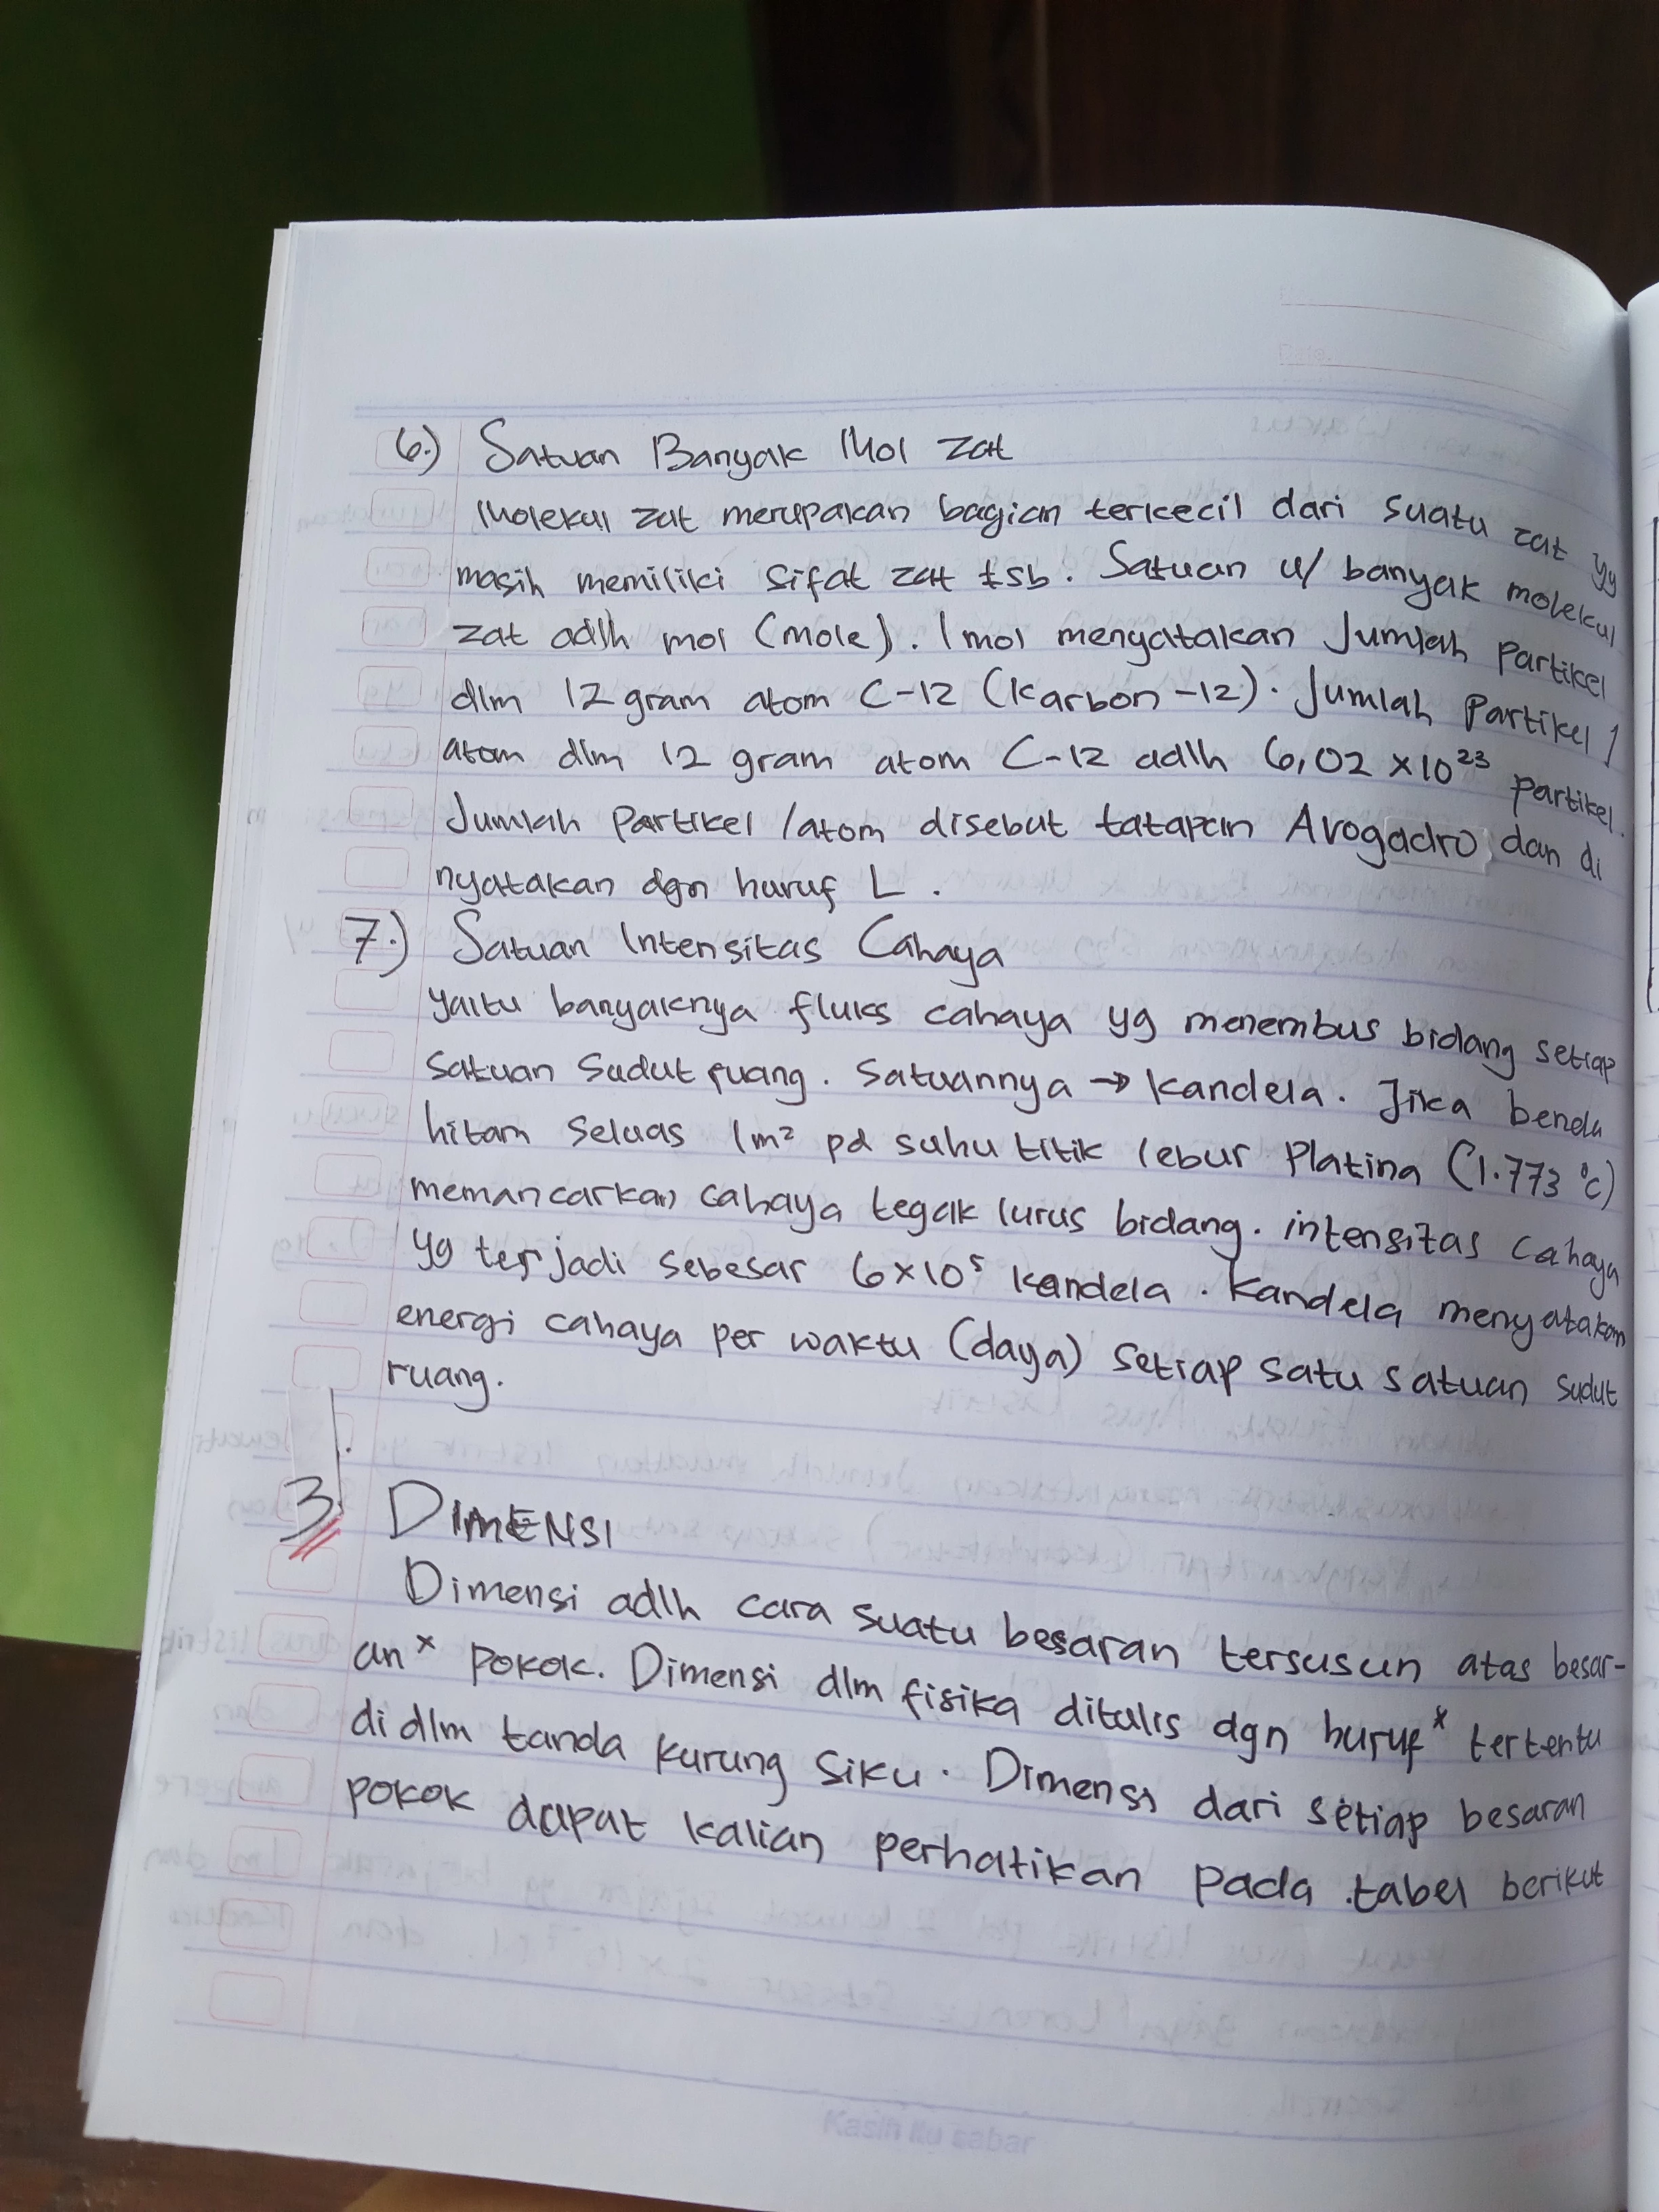 Date.
6.) Satuan Banyak Mol zat
Molekul zat merupakan bagian terkecil dari suatu zat yg
masih memiliki sifat zat tsb. Satuan u/ banyak molekul
zat adlh mol (mole). 1 mol menyatakan Jumlah Partikel
dlm 12 gram atom C-12 (Karbon-12). Jumlah Partikel /
atom dlm 12 gram atom C-12 adlh 6,02 x 10²³ partikel.
Jumlah Partikel /atom disebut tatapan Avogadro dan di
nyatakan dgn huruf L.
7.) Satuan Intensitas Cahaya
yaitu banyaknya fluks cahaya yg menembus bidang setiap
satuan sudut ruang. Satuannya → kandela. Jika benda
hitam seluas 1m² pd suhu titik lebur Platina (1.773 °c)
memancarkan cahaya tegak lurus bidang. intensitas cahaya
yg terjadi sebesar 6x10⁵ kandela. Kandela menyatakan
energi cahaya per waktu (daya) setiap satu satuan sudut
ruang.
3. DIMENSI
Dimensi adlh cara suatu besaran tersusun atas besar-
an ˣ pokok. Dimensi dlm fisika ditulis dgn huruf ˣ tertentu
di dlm tanda kurung siku. Dimensi dari setiap besaran
pokok dapat kalian perhatikan pada tabel berikut
Kasih itu sabar